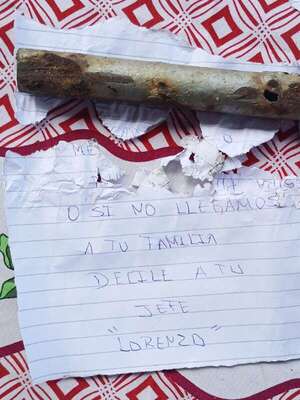 ME
O
O SI NO LLEGAMOS
A TU FAMILIA
DECILE A TU
JEFE
"LORENZO"